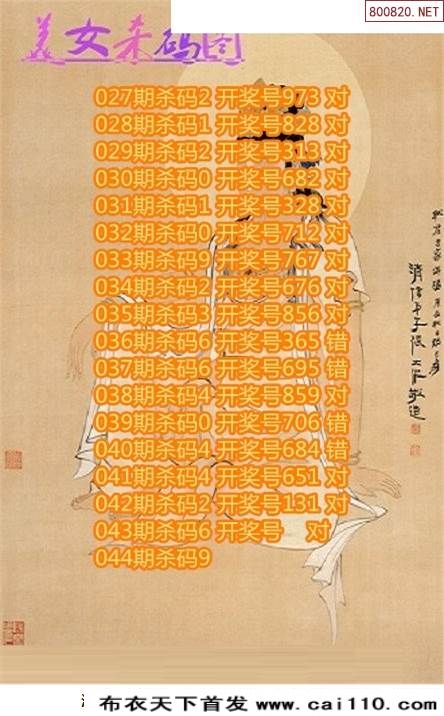 800820.NET
美女杀码图
027期杀码2 开奖号973 对
028期杀码1 开奖号828 对
029期杀码2 开奖号313 对
030期杀码0 开奖号682 对
031期杀码1 开奖号328 对
032期杀码0 开奖号712 对
033期杀码9 开奖号767 对
034期杀码2 开奖号676 对
035期杀码3 开奖号856 对
036期杀码6 开奖号365 错
037期杀码6 开奖号695 错
038期杀码4 开奖号859 对
039期杀码0 开奖号706 错
040期杀码4 开奖号684 错
041期杀码4 开奖号651 对
042期杀码2 开奖号131 对
043期杀码6 开奖号 对
044期杀码9
布衣天下首发 www.cai110.com